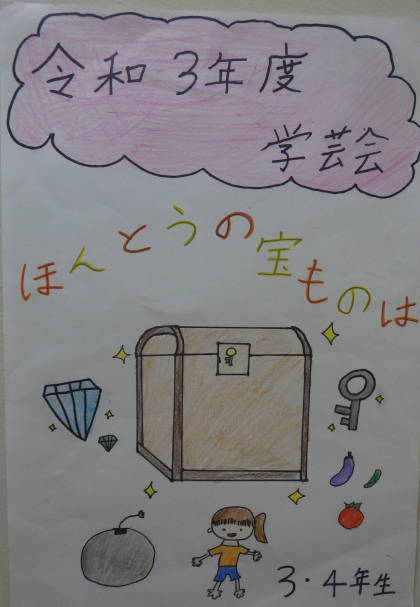 令和3年度
学芸会
ほんとうの宝ものは
3・4年生